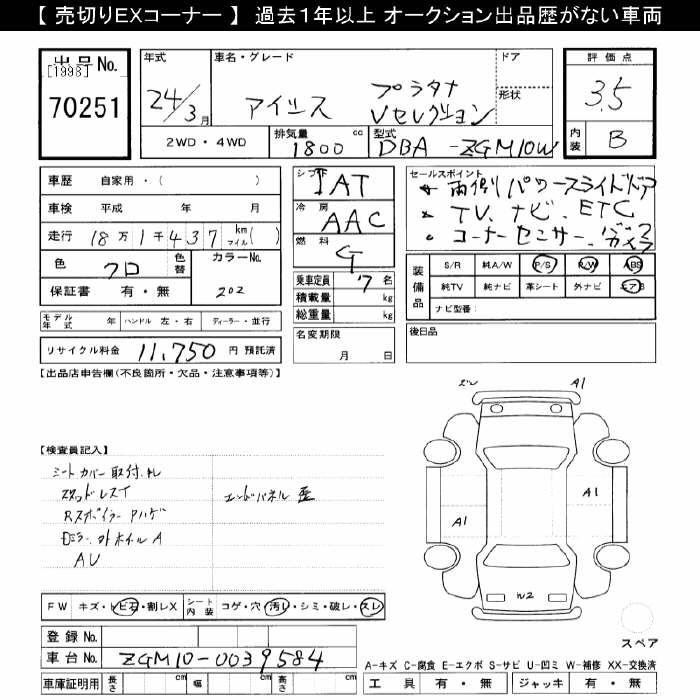 【 売切りEXコーナー 】 過去1年以上 オークション出品歴がない車両
出品 No.
[1998]
70251
年式
24/3月
車名・グレード
プラタナ
アイシス Vセレクション
ドア
形状
評価点
3.5
内装 B
2WD・4WD
排気量 cc
1800
型式
DBA -ZGM10W
車歴 自家用・( )
車検 平成 年 月
走行 18万1千437 km マイル( )
色 クロ
色替
カラーNo.
202
保証書 有・無
シフト
↑AT
冷房
AAC
燃料
G
乗車定員 7 名
積載量 kg
総重量 kg
セールスポイント
★ 両側パワースライドドア
★ TV、ナビ、ETC
★ コーナーセンサー、
装備品
S/R 純A/W P/S P/W ABS
純TV 純ナビ 革シート 外ナビ エアB
ナビ型番:
モデル年式 年 ハンドル 左・右 ディーラー・並行
リサイクル料金 11,750 円 預託済
名変期限
月 日
後日品
【出品店申告欄(不良箇所・欠品・注意事項等)】
【検査員記入】
シートカバー取付
スタッドレスT
Rスポイラー Aハゲ
エンドパネル 歪
外 ホイル A
AU
A1
A1
A1
W2
FW キズ・トビ石・割レX
シート内装 コゲ・穴・汚レ・シミ・破レ・スレ
登録 No.
車台 No. ZGM10-0039584
車庫証明用 長さ cm 幅 cm 高さ cm
スペア
A-キズ C-腐食 E-エクボ S-サビ U-凹ミ W-補修 XX-交換済
工具 有・無 ジャッキ 有・無